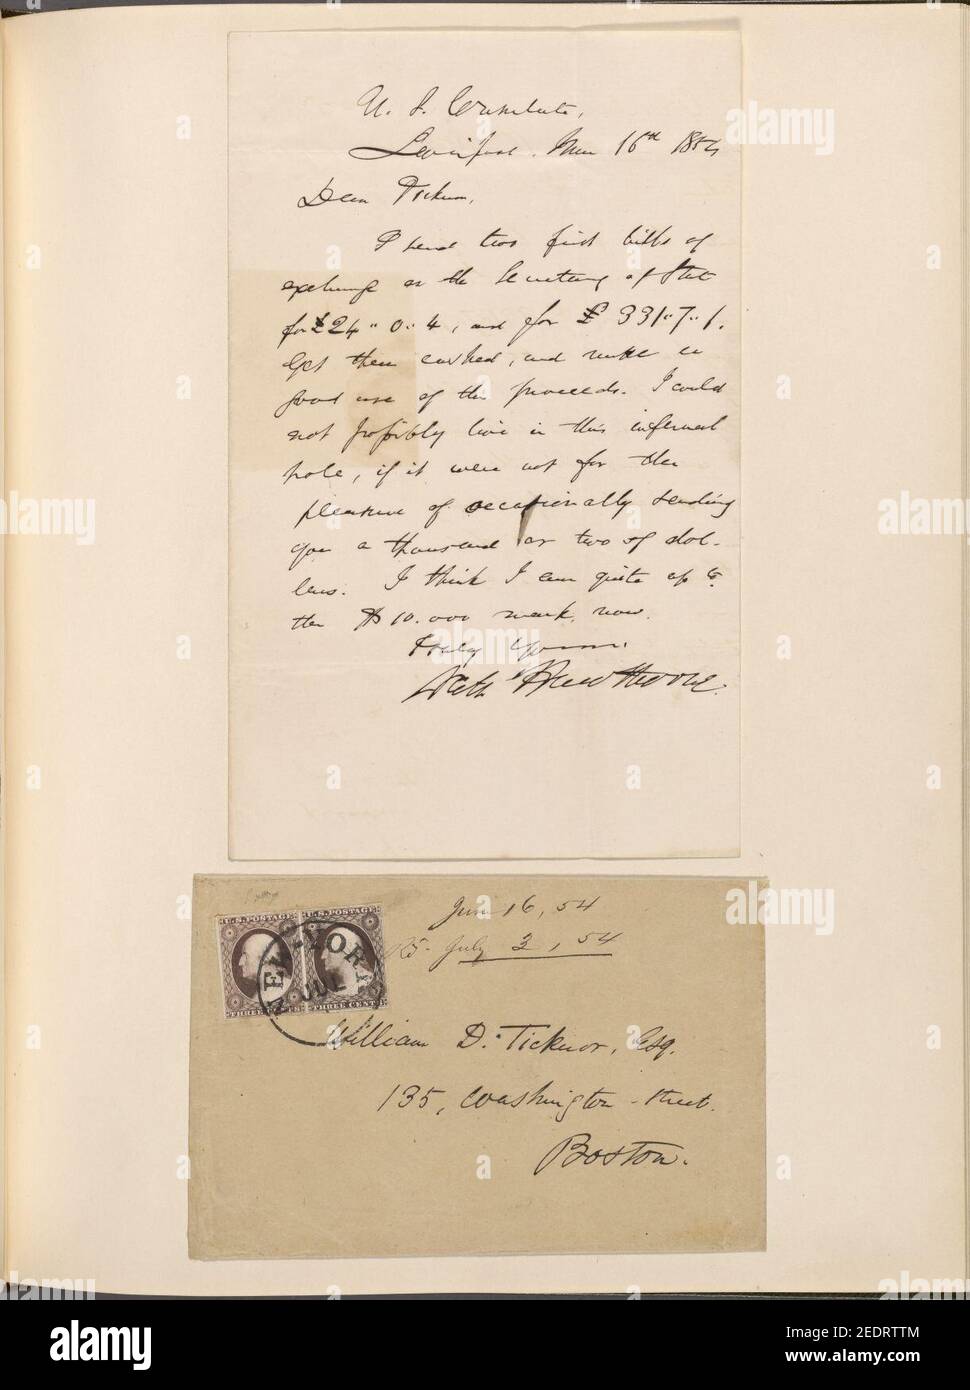 U. S. Consulate,
Liverpool, June 16th 1854
Dear Ticknor,
I send two first bills of
exchange on the Secretary of State
for £24 .. 0 .. 4, and for £ 331 .. 7 .. 1.
Get them cashed, and make a
good use of the proceeds. I could
not possibly live in this infernal
hole, if it were not for the
pleasure of occasionally sending
you a thousand or two of dol-
lars. I think I am quite up to
the $10.000 mark, now.
Truly Yours.
Nath Hawthorne.
U.S. POSTAGE
THREE CENTS
U.S. POSTAGE
THREE CENTS
NEW-YORK
JUL
June 16, 54
July 3, 54
William D. Ticknor, Esq.
135, Washington-street.
Boston.
alamy
Image ID: 2EDRTTM
www.alamy.com